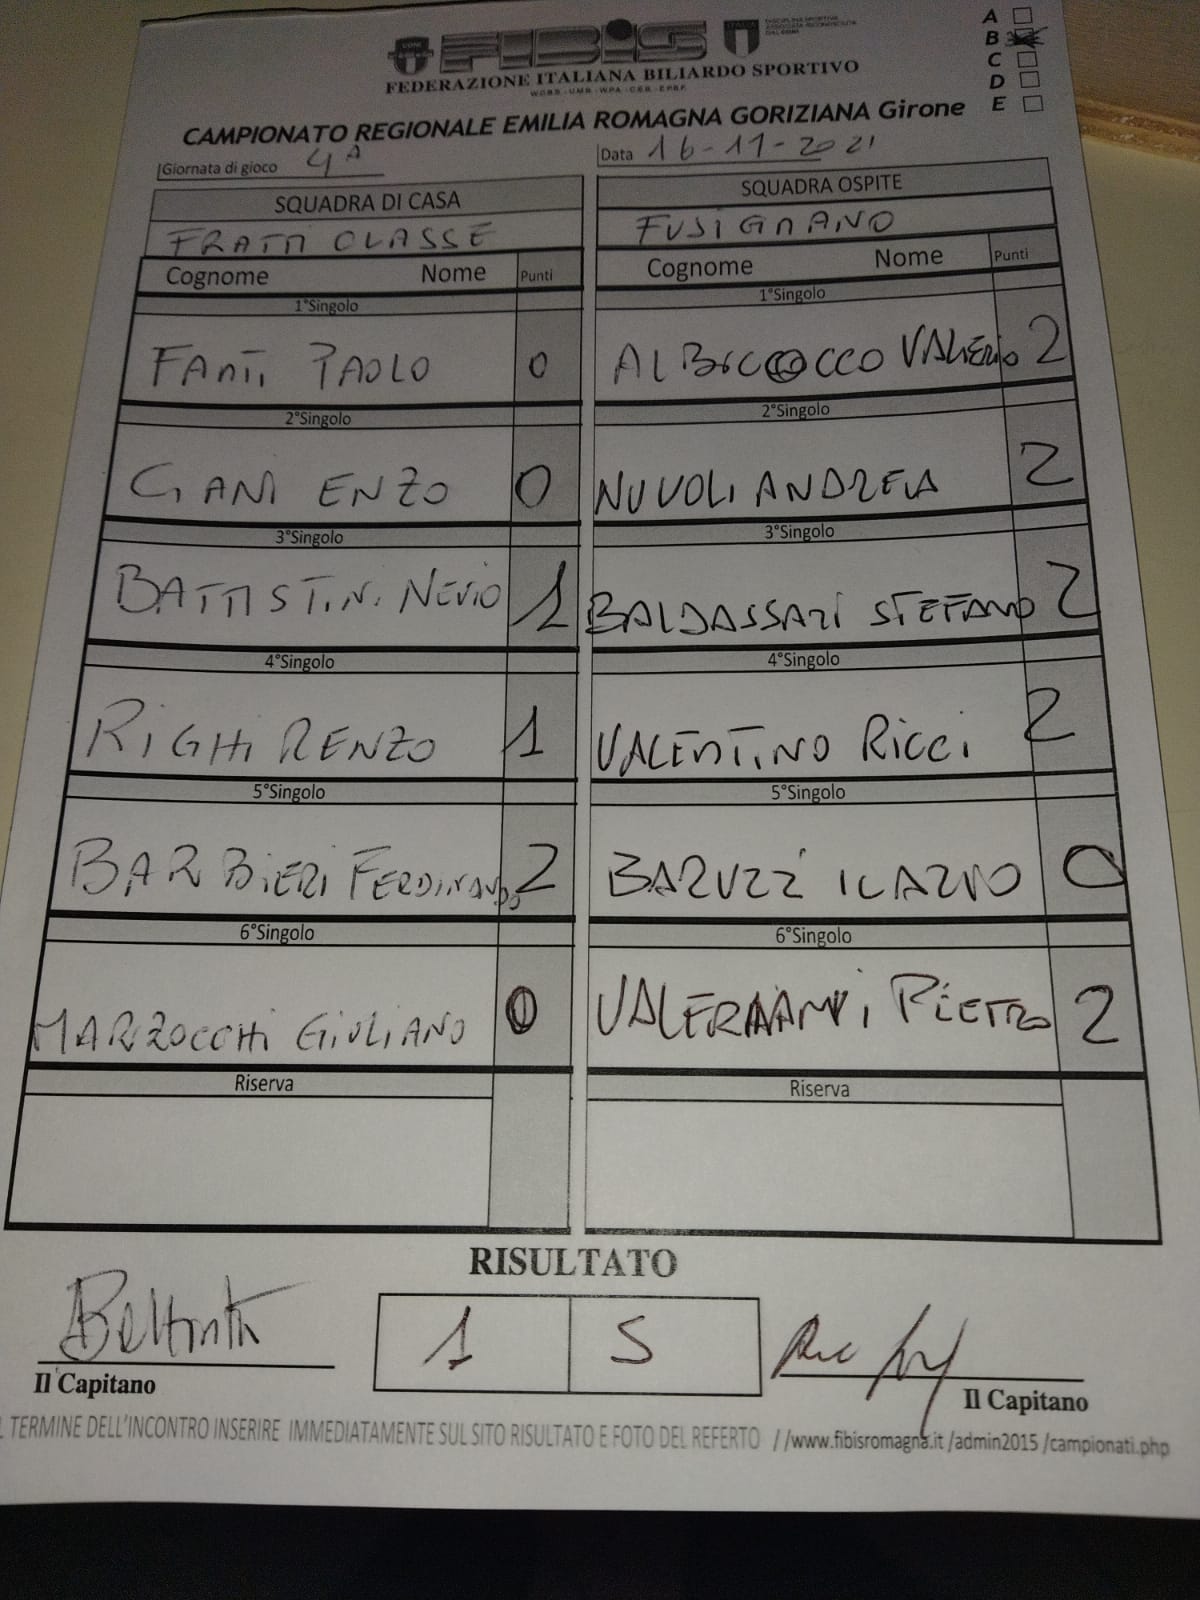 FIBIS
FEDERAZIONE ITALIANA BILIARDO SPORTIVO
W.C.B.S - U.M.B - W.P.A - C.E.B - E.P.B.F.
A
B
C
D
E
CAMPIONATO REGIONALE EMILIA ROMAGNA GORIZIANA Girone
Giornata di gioco 4^A
Data 16-11-2021
SQUADRA DI CASA
SQUADRA OSPITE
FRATTI CLASSE
FUSIGNANO
Cognome Nome Punti
Cognome Nome Punti
1°Singolo
1°Singolo
FANTI PAOLO 0
ALBICOCCO VALERIO 2
2°Singolo
2°Singolo
GANI ENZO 0
NUVOLI ANDREA 2
3°Singolo
3°Singolo
BATTISTINI NEVIO 1
BALDASSARI STEFANO 2
4°Singolo
4°Singolo
RIGHI RENZO 1
VALENTINO RICCI 2
5°Singolo
5°Singolo
BARBIERI FERDINANDO 2
BARUZZI ILARIO 0
6°Singolo
6°Singolo
MARZOCCHI GIULIANO 0
PIETRO 2
Riserva
Riserva
RISULTATO
1 5
Il Capitano
Il Capitano
TERMINE DELL'INCONTRO INSERIRE IMMEDIATAMENTE SUL SITO RISULTATO E FOTO DEL REFERTO //www.fibisromagna.it /admin2015 /campionati.php